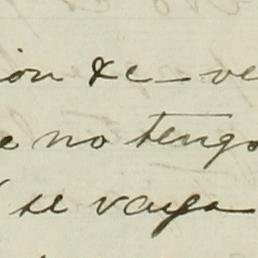 ion &c – ve
e no tengo
se vaya